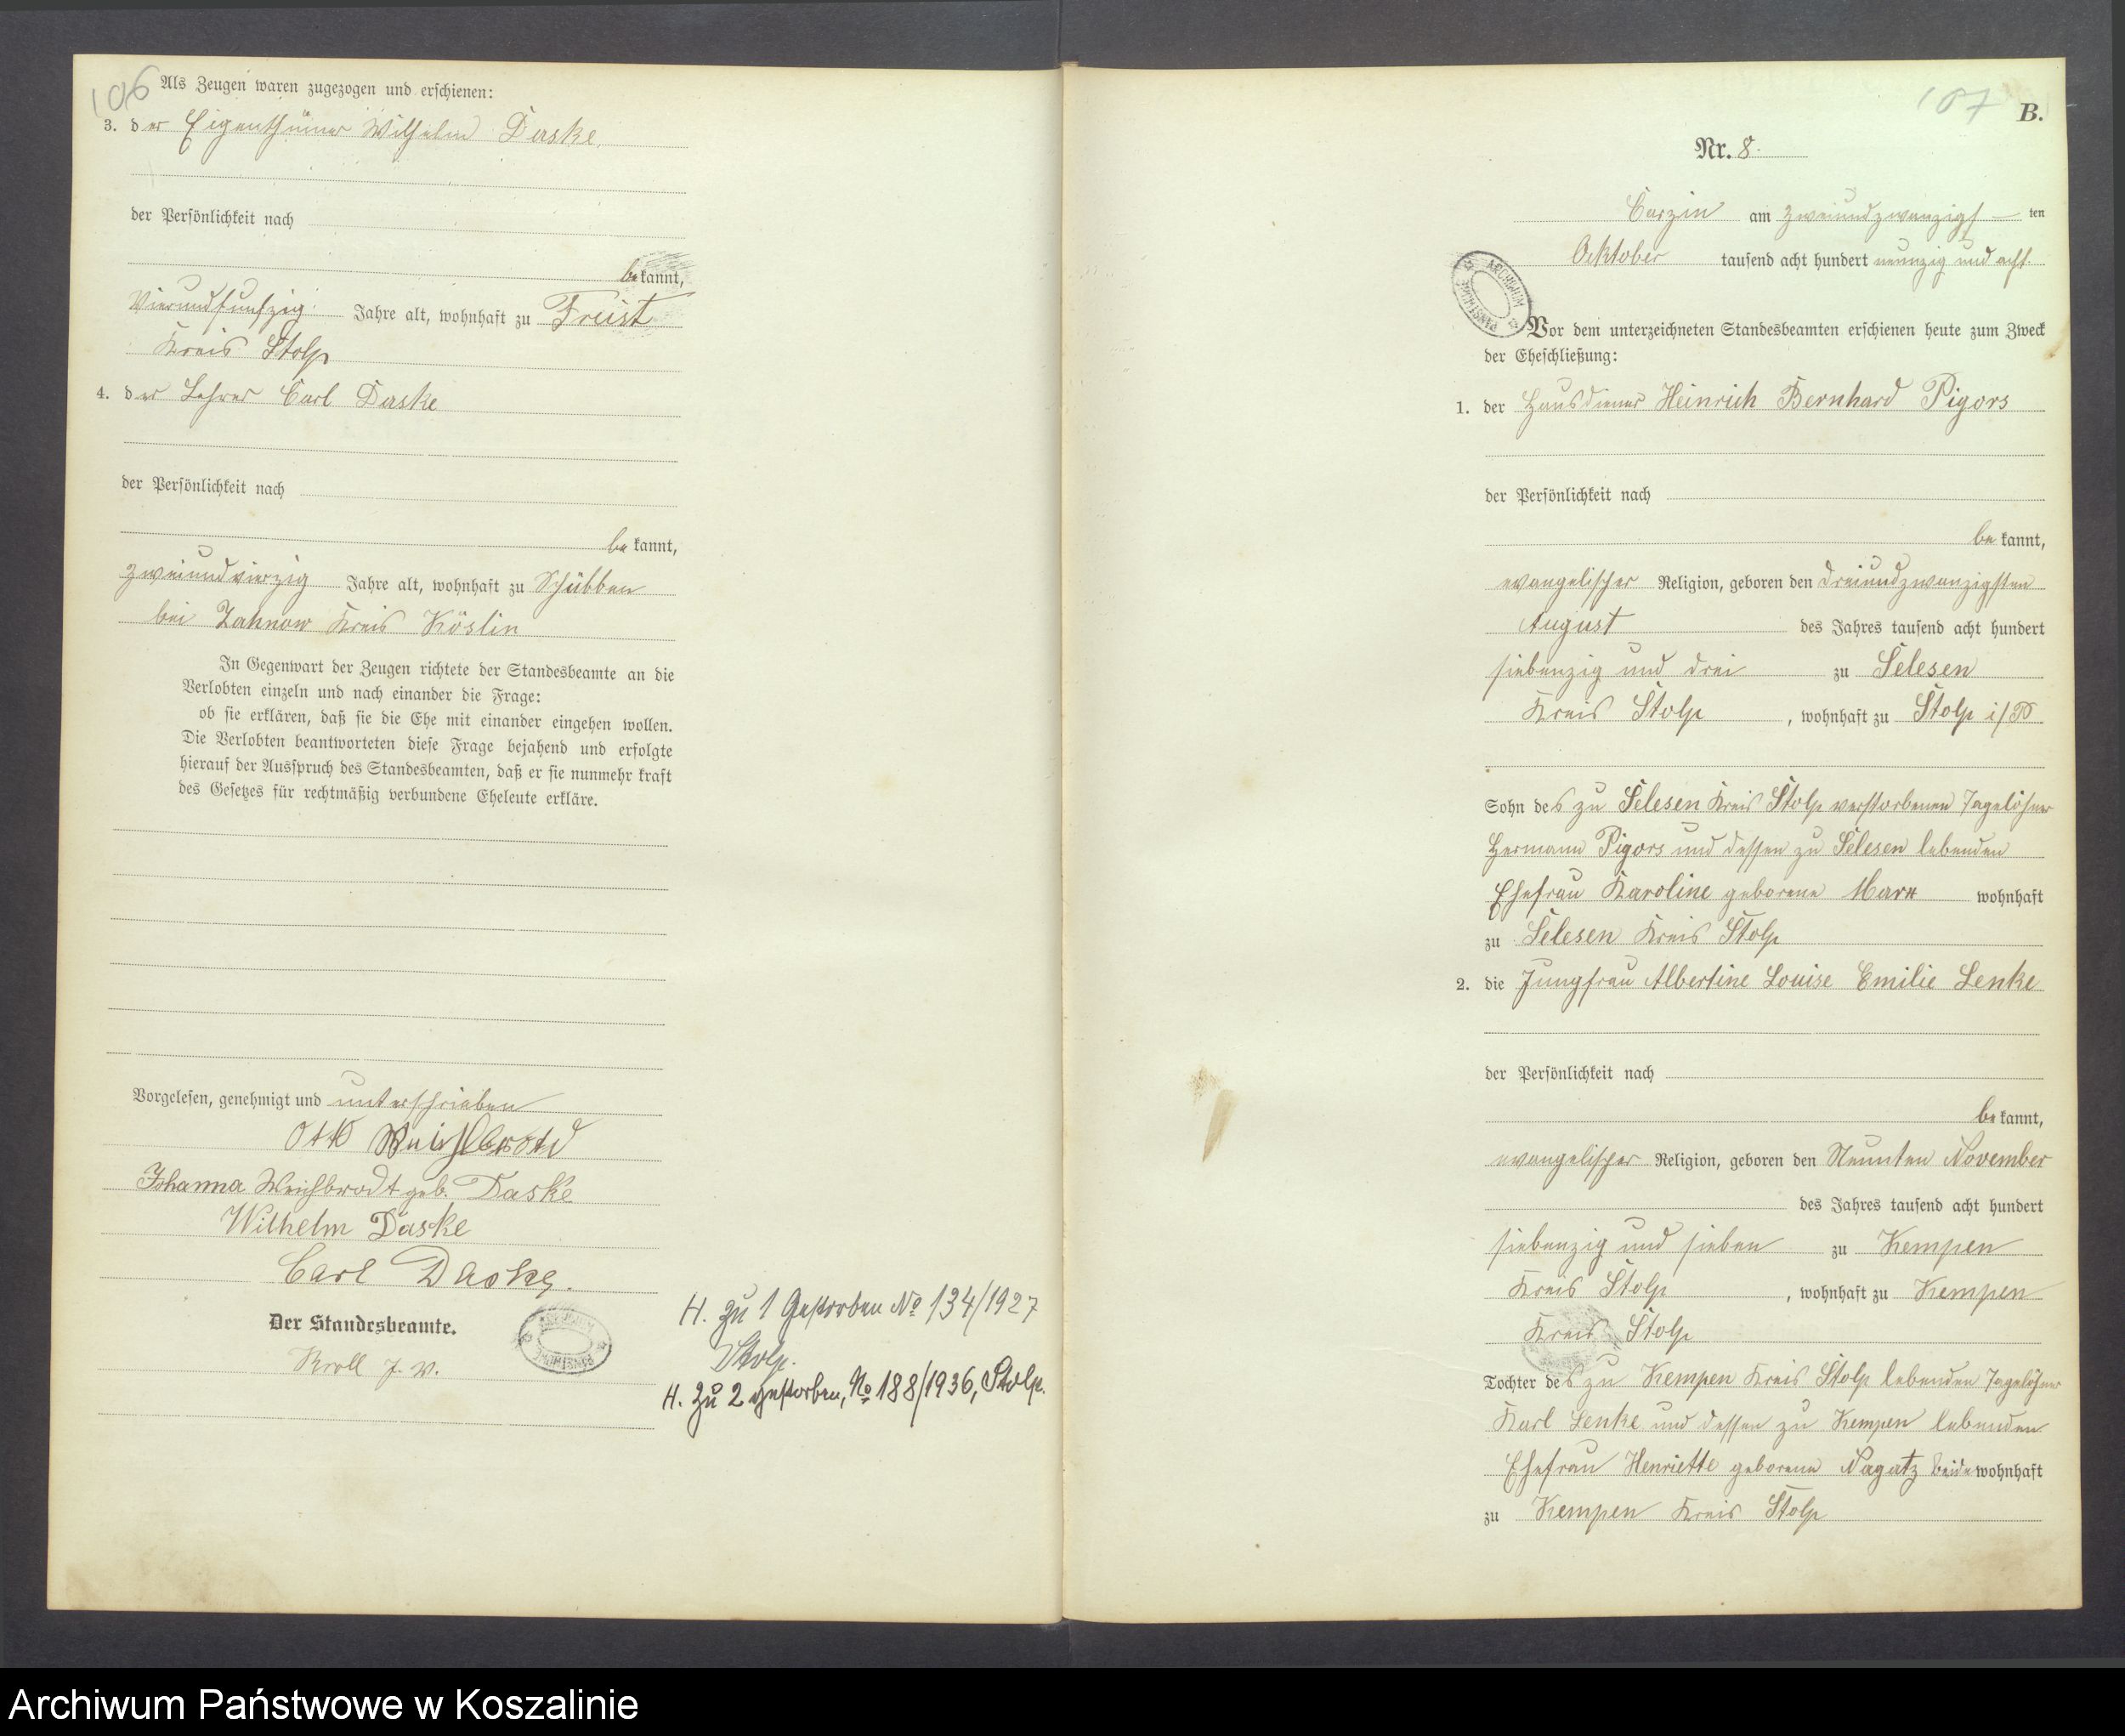 106
Als Zeugen waren zugezogen und erschienen:
3. der Eigenthümer Wilhelm Daske
der Persönlichkeit nach
bekannt,
Vierundfünfzig Jahre alt, wohnhaft zu Freist
Kreis Stolp
4. der Lehrer Carl Daske
der Persönlichkeit nach
be kannt,
zweiundvierzig Jahre alt, wohnhaft zu Schübben
bei Zahnow Kreis Köslin
In Gegenwart der Zeugen richtete der Standesbeamte an die
Verlobten einzeln und nach einander die Frage:
ob sie erklären, daß sie die Ehe mit einander eingehen wollen.
Die Verlobten beantworteten diese Frage bejahend und erfolgte
hierauf der Ausspruch des Standesbeamten, daß er sie nunmehr kraft
des Gesetzes für rechtmäßig verbundene Eheleute erkläre.
Vorgelesen, genehmigt und unterschrieben
Otto
Johanna Weichbrodt geb. Daske
Wilhelm Daske
Carl Daske.
Der Standesbeamte.
Kroll J. V.
H. zu 1 Gestorben No 134/1927
Stolp.
H. Zu 2 gestorben, No 188/1936, Stolp.
107
B.
Nr. 8.
Carzin am zweiundzwanzigs ten
Oktober tausend acht hundert neunzig und acht
Vor dem unterzeichneten Standesbeamten erschienen heute zum Zweck
der Eheschließung:
1. der Hausdiener Heinrich Bernhard Pigors
der Persönlichkeit nach
be kannt,
evangelischer Religion, geboren den dreiundzwanzigsten
August des Jahres tausend acht hundert
siebenzig und drei zu Selesen
Kreis Stolp, wohnhaft zu Stolp i/P
Sohn des zu Selesen Kreis Stolp verstorbenen Tagelöhner
Hermann Pigors und dessen zu Selesen lebenden
Ehefrau Karoline geborene wohnhaft
zu Selesen Kreis Stolp
2. die Jungfrau Albertine Louise Emilie Lenke
der Persönlichkeit nach
be kannt,
evangelischer Religion, geboren den Neunten November
des Jahres tausend acht hundert
siebenzig und sieben zu Kempen
Kreis Stolp, wohnhaft zu Kempen
Kreis Stolp
Tochter des zu Kempen Kreis Stolp lebenden Tagelöhner
Karl Lenke und dessen zu Kempen lebenden
Ehefrau Henriette geborene Nagatz beide wohnhaft
zu Kempen Kreis Stolp
Archiwum Państwowe w Koszalinie